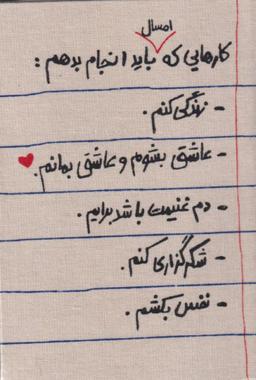 امسال
کارهایی که باید انجام بدهم :
- زندگی کنم .
- عاشق بشوم و عاشق بمانم .
- دم غنیمت باشد برایم .
- شکرگزاری کنم .
- نفس بکشم .